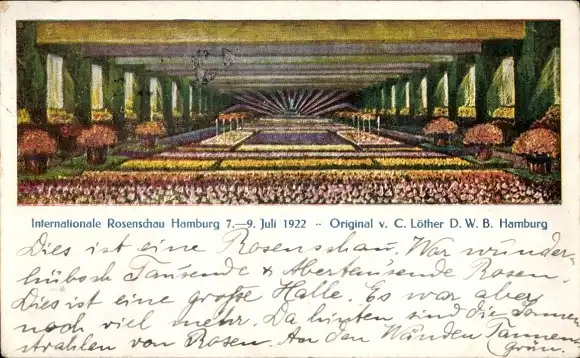 Internationale Rosenschau Hamburg 7.—9. Juli 1922 -- Original v. C. Löther D. W. B. Hamburg
Dies ist eine Rosenschau. War wunder-
hübsch Tausende & Abertausende Rosen.
Dies ist eine große Halle. Es war aber
noch viel mehr. Da hinten sind die Sonnen
strahlen von Rosen. An den Wänden Tannen
grün.